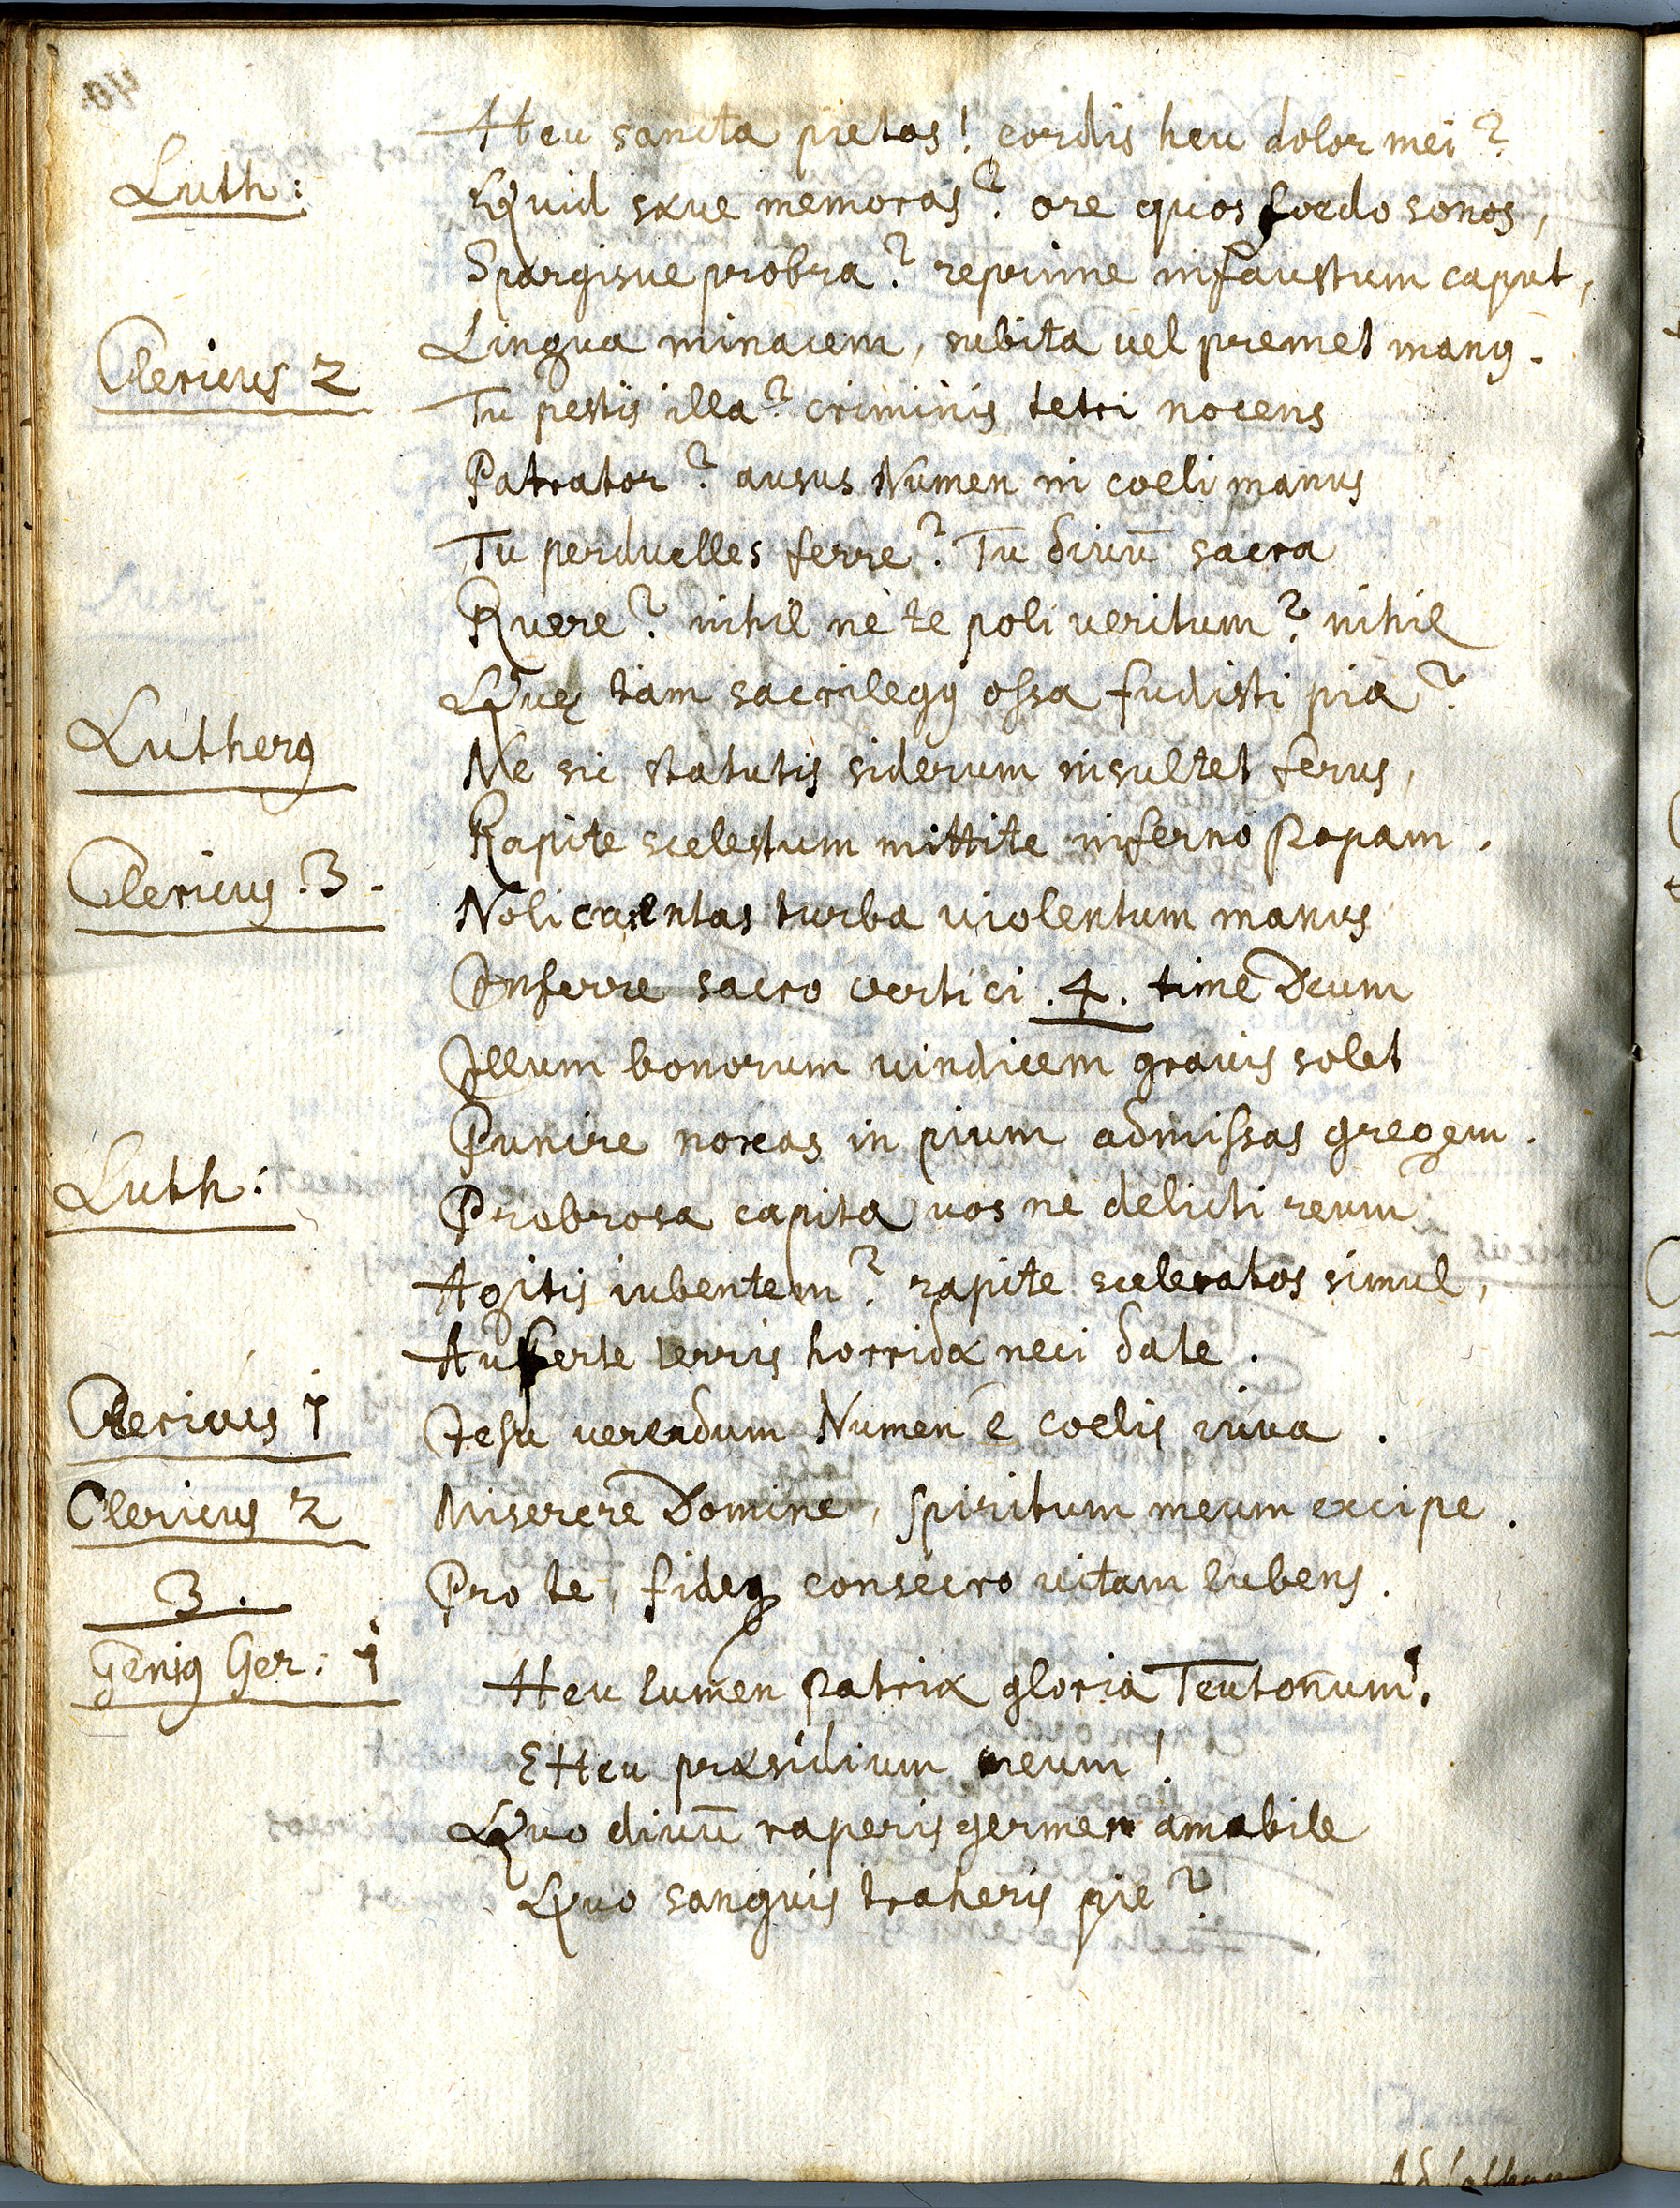 Heu sancta pietas! cordis heu dolor mei?
Luth: Quid sæue memoras? ore quos foedo sonos,
Spargisue probra? reprime infaustum caput,
Lingua minacem, subita uel premet manꝰ.
Clericus 2 Tu pestis illa? criminis tetri nocens
Patrator? ausus Numen in coeli manus
Tu perduelles ferre? Tu diuū sacra
Ruere? nihil nè te poli ueritum? nihil
Quę tam sacrilegꝰ ossa fudisti pia?
Lutherꝰ Ne sic statutis siderum insultet ferus,
Rapite scelestum mittite inferno Papam.
Clericus .3. Noli cruentas turba uiolentum manus
Inferre sacro uertici .4. time Deum
Illum bonorum uindicem grauis solet
Punire noxas in pium admissas gregem.
Luth: Probrosa capita uos ne delicti reum
Agitis iubentem? rapite sceleratos simul,
Auferte terris horridæ neci date.
Clericus 1 Iesu uerendum Numen è coelis iuua.
Clericus 2 Miserere Domine, spiritum meum excipe.
3. Pro te, fideq consecro uitam lubens.
Geniꝰ Ger: 1 Heu lumen patriæ gloria Teutonum!
EHeu præsidium meum!
Quo diuū raperis germen amabile
Quo sanguis traheris pie?